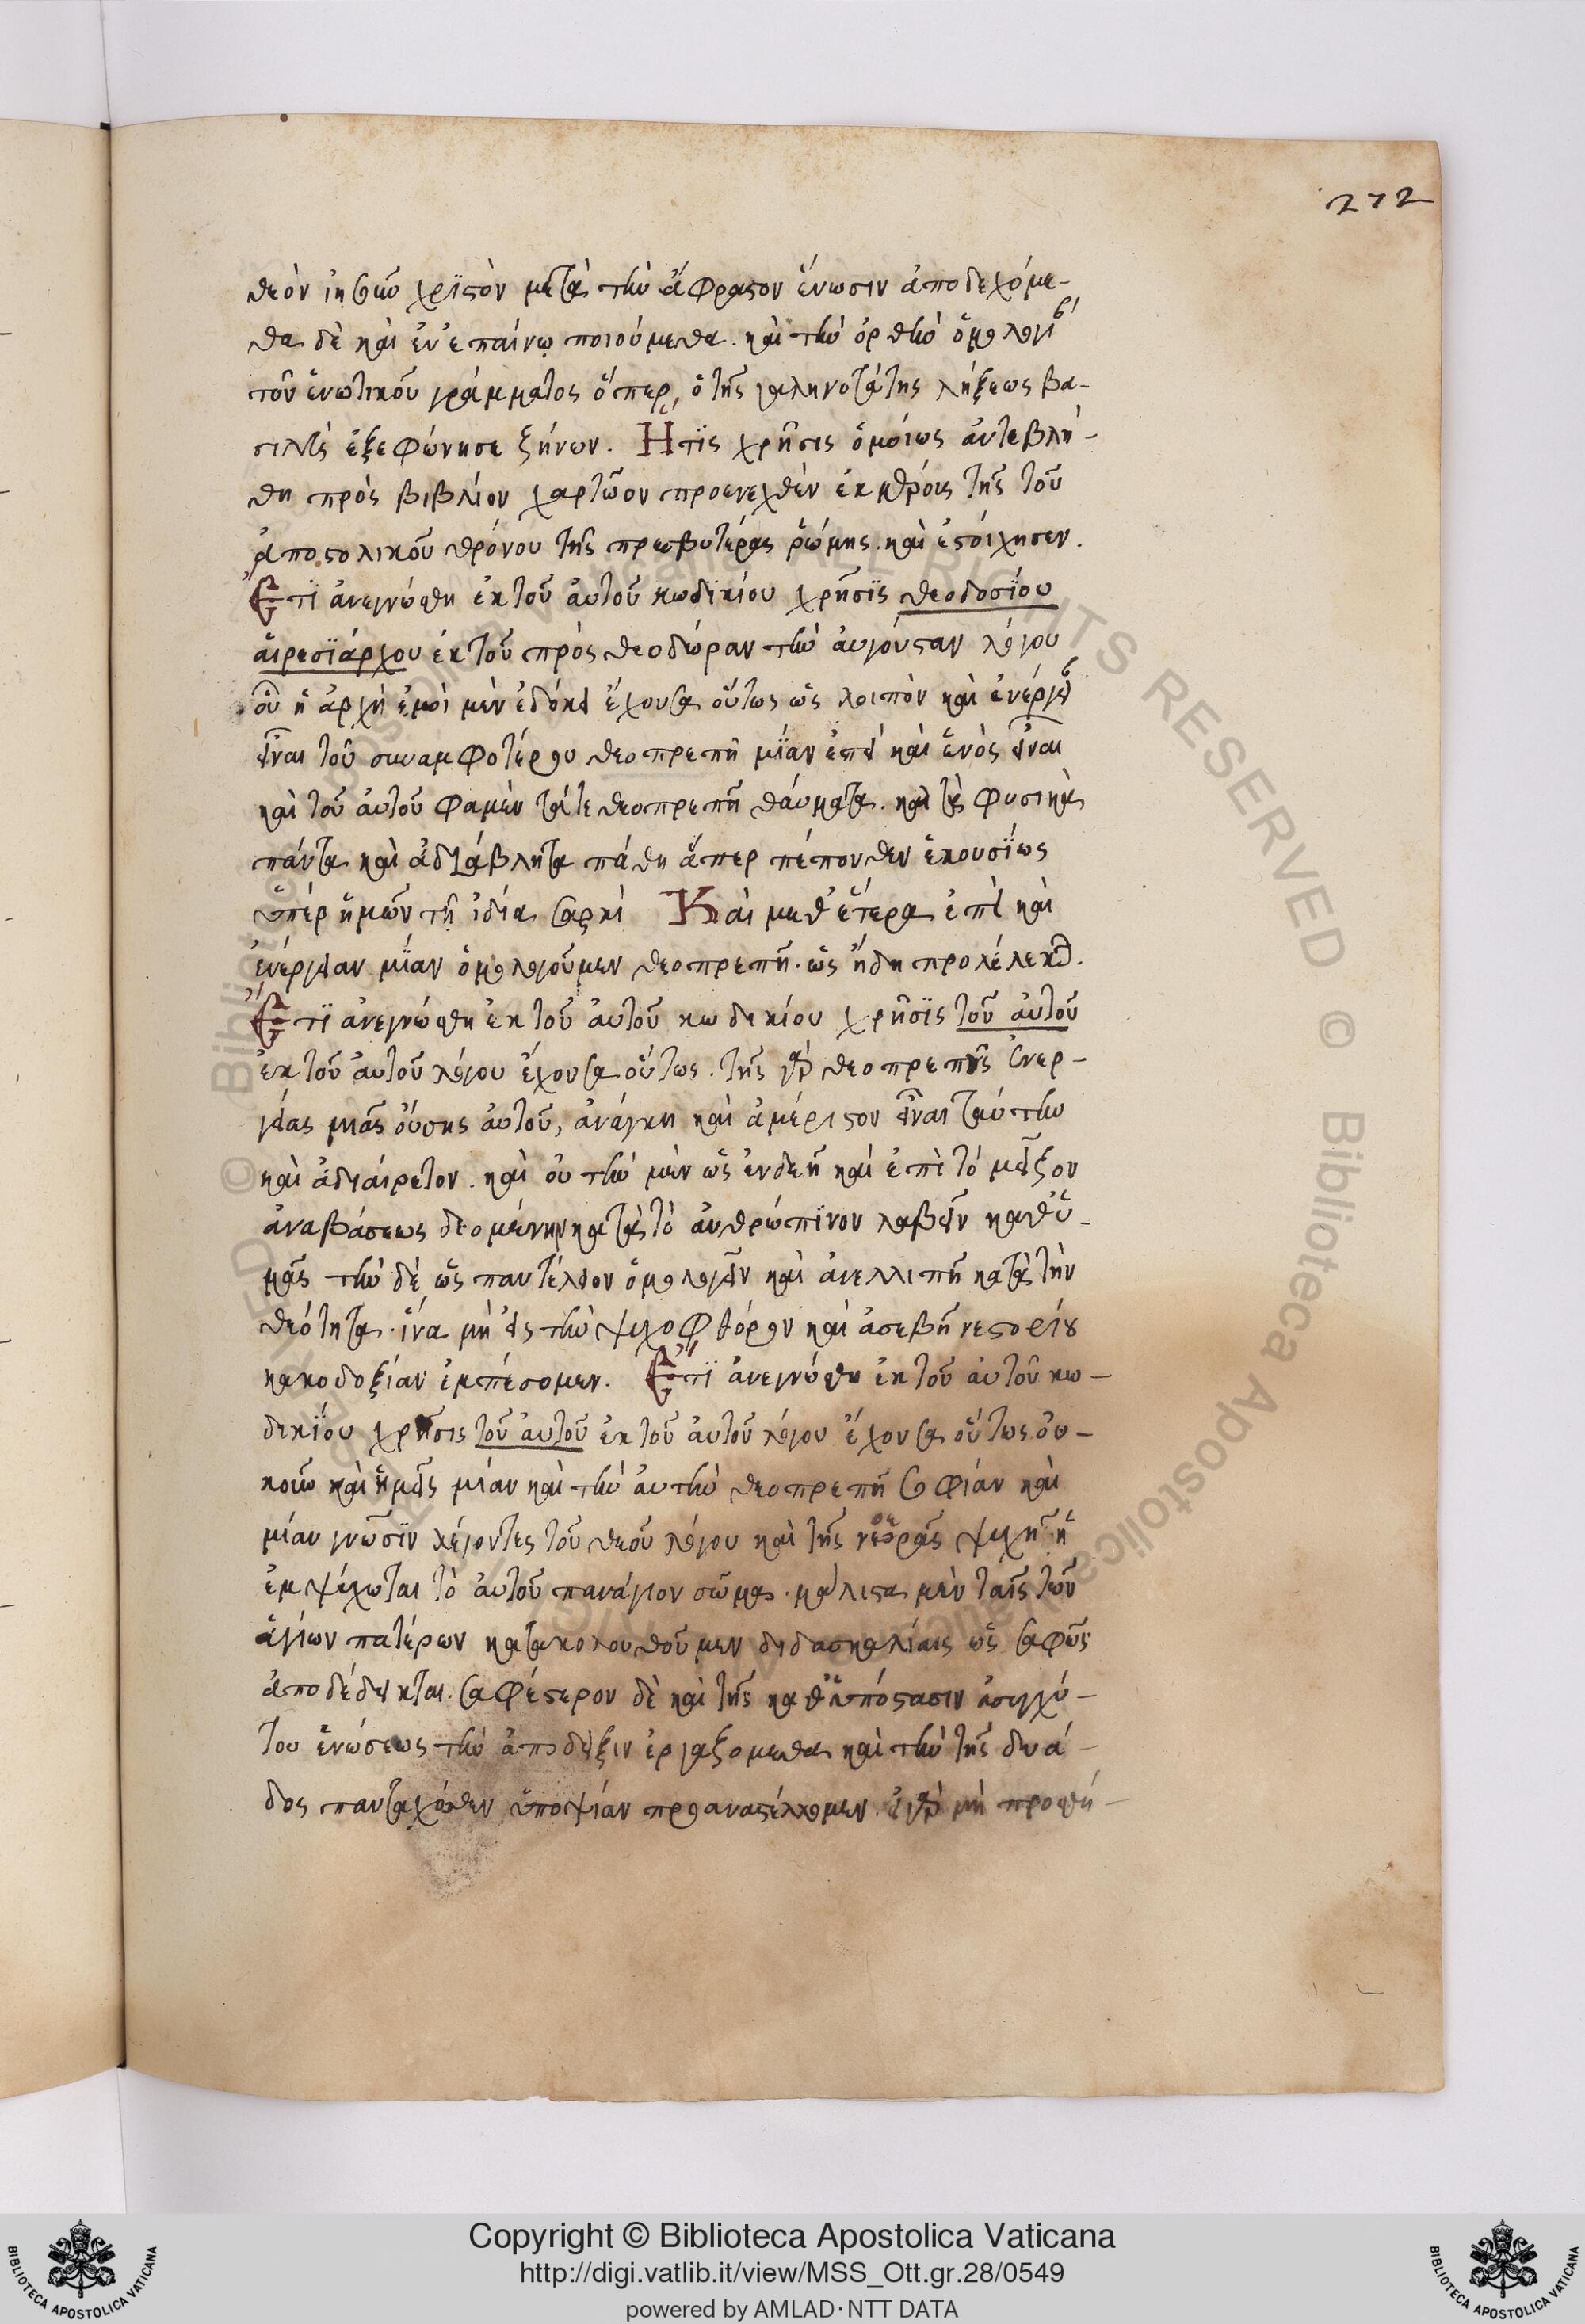 272
θεὸν ἰησοῦν χρϊστὸν μετὰ τὴν ἄφραστον ἕνωσιν ἀποδεχόμε-
θα δὲ καὶ ἐν ἐπαίνῳ ποιούμεθα. καὶ τὴν ὀρθὴν ὁμολογί
τοῦ ἑνωτικοῦ γράμματος ὅπερ, ὁ τῆς γαληνοτάτης λήξεως βα-
σιλεὺς ἐξεφώνησε ζήνων. Ἥτϊς χρῆσις ὁμοίως ἀντεβλή-
θη πρὸς βιβλίον χαρτῶον προενεχθὲν ἐκ μέρους τῆς τοῦ
ἀποστολικοῦ θρόνου τῆς πρεσβυτέρας ῥώμης. καὶ ἐστοίχησεν.
Ἔτϊ ἀνεγνώσθη ἐκ τοῦ αὐτοῦ κωδικίου χρῆσϊς θεοδοσΐου
αἱρεσϊάρχου ἐκ τοῦ πρὸς θεοδώραν τὴν αὐγούσταν λόγου
οὗ ἡ ἀρχὴ ἐμοὶ μὲν ἐδόκει ἔχουσα οὕτως ὡς λοιπὸν καὶ ἐνέργει
εἶναι τοῦ συναμφοτέρου θεοπρεπῆ μΐαν ἐπεὶ καὶ ἑνὸς εἶναι
καὶ τοῦ αὐτοῦ φαμὲν τά τε θεοπρεπῆ θάυματα. καὶ τὰ φυσικὰ
πάντα καὶ ἀδιάβλητα πάθη ἅπερ πέπονθεν ἑκουσΐως
ὑπὲρ ἡμῶν τῇ ἰδία σαρκί Καὶ μεθ' ἕτερα ἐπεὶ καὶ
ἐνέργειαν μΐαν ὁμολογοῦμεν θεοπρεπῆ. ὡς ἤδη προλέλεκται.
Ἔτϊ ἀνεγνώσθη ἐκ τοῦ αὐτοῦ κωδικίου χρῆσϊς τοῦ αὐτοῦ
ἐκ τοῦ αὐτοῦ λόγου ἔχουσα οὕτως. τῆς γὰρ θεοπρεποῦς ἐνερ-
γείας μιᾶς οὔσης αὐτοῦ, ἀνάγκη καὶ ἀμέριστον εἶναι ταύτην
καὶ ἀδιαίρετον. καὶ οὐ τὴν μὲν ὡς ἐνδεῆ καὶ ἐπὶ τὸ μεῖζον
ἀναβάσεως δεομένην κατὰ τὸ ἀνθρώπϊνον λαβεῖν καθ' ὑ-
μᾶς τὴν δὲ ὡς παντέλειον ὁμολογεῖν καὶ ἀνελλιπῆ κατὰ τὴν
θεότητα. ἵνα μὴ εἰς τὴν ψυχοφθόρον καὶ ἀσεβῆ νεστορίου
κακοδοξίαν ἐμπέσομεν. Ἔτϊ ἀνεγνώσθη ἐκ τοῦ αὐτοῦ κω-
δικΐου χρῆσις τοῦ αὐτοῦ ἐκ τοῦ αὐτοῦ λόγου ἔχουσα οὕτως. οὐ-
κοῦν καὶ ἡμεῖς μίαν καὶ τὴν αὐτὴν θεοπρεπῆ σοφίαν καὶ
μίαν γνῶσϊν λέγοντες τοῦ θεοῦ λόγου καὶ τῆς νοερᾶς ψυχῆς ᾗ
ἐμψύχωται τὸ αὐτοῦ πανάγιον σῶμα. μάλιστα μὲν ταῖς τῶν
ἁγίων πατέρων κατακολουθοῦμεν διδασκαλίαις ὡς σαφῶς
ἀποδέδεικται. σαφέστερον δὲ καὶ τῆς καθ' ὑπόστασιν ἀσυγχύ-
του ἑνώσεως τὴν ἀπόδειξιν ἐργαζομεθα καὶ τὴν τῆς δυά-
δος πανταχόθεν ὑποψίαν προαναστέλλομεν. εἰ γὰρ μὴ προσθή-
Copyright © Biblioteca Apostolica Vaticana
http://digi.vatlib.it/view/MSS_Ott.gr.28/0549
powered by AMLAD·NTT DATA